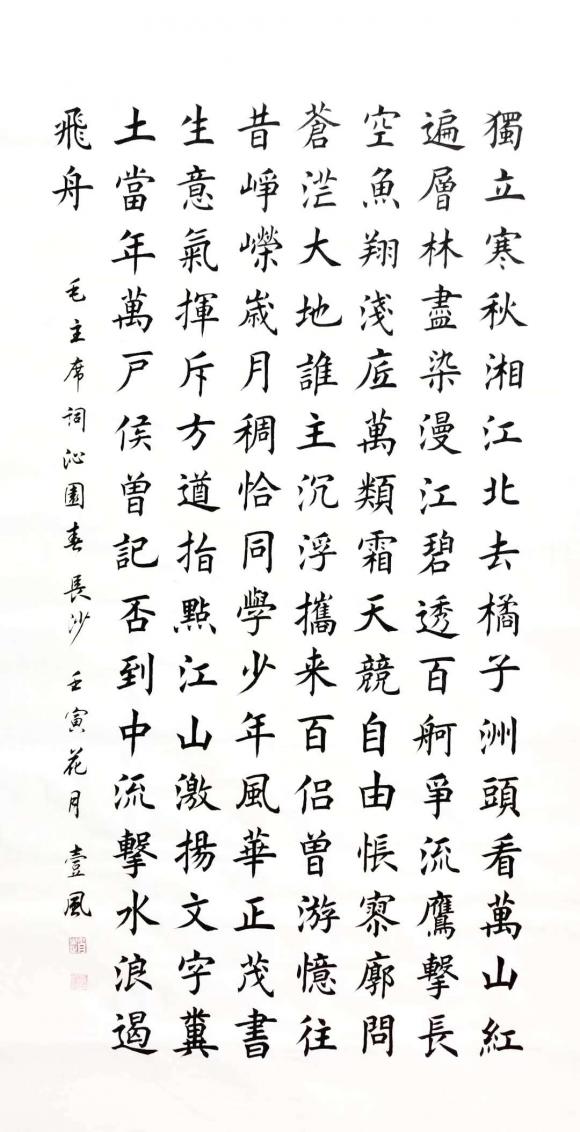 獨立寒秋湘江北去橘子洲頭看萬山紅
遍層林盡染漫江碧透百舸爭流鷹擊長
空魚翔淺底萬類霜天競自由悵寥廓問
蒼茫大地誰主沉浮攜来百侣曾游憶往
昔崢嶸歲月稠恰同學少年風華正茂書
生意氣揮斥方遒指點江山激揚文字糞
土當年萬戶侯曾記否到中流擊水浪遏
飛舟 毛主席詞沁園春長沙 壬寅花月 壹風